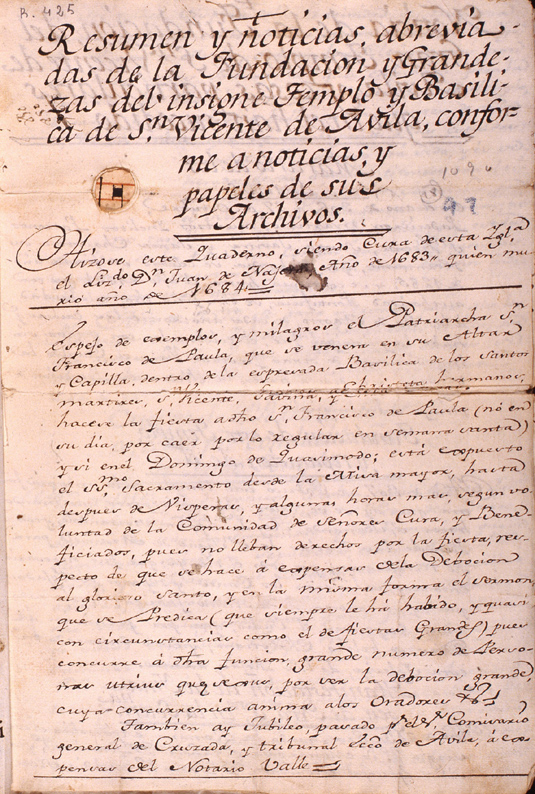 R. 425
Resumen y noticias, abrevia-
das de la Fundacion y Grande-
zas del insigne Templo y Basili-
ca de Sn. Vicente de Avila, confor-
me a noticias, y
papeles de sus
Archivos.
1096
97
Hizose este Quaderno, siendo Cura de esta Iglª
el Lizdo Dn. Juan de Año de 1683, quien mu-
rió año de 1684.
Espejo de exemplos, y milagros el Patriarcha Sn.
Francisco de Paula, que se venera en su Altar
y Capilla, dentro de la espresada Basilica de los Santos
martires, Sn. Vicente, Savina, y Christeta hermanos,
hacese la fiesta adho Sn. Francisco de Paula (no en
su dia, por caer por lo regular en semana santa)
y si enel Domingo de Quasimodo; está expuesto
el SSmo Sacramento desde la Misa mayor, hasta
despues de Visperas, y algunas horas mas, segun vo-
luntad de la Comunidad de Señores Cura, y Bene-
ficiados, pues no lleban derechos por la fiesta, res-
pecto de que se hace á expensas dela Debocion
al glorioso Santo, y en la misma forma el sermon,
que se Predica (que siempre le há habido, y quasi
con circunstancias como el de fiestas Grandes) pues
concurre, á dha funcion, grande numero de Perso-
nas utrius que sexus, por ver la debocion grande,
cuya concurrencia anima alos Oradores
Tambien ay Jubileo, pasado pr el Sr Comisario
general de Cruzada, y tribunal Ecco de Avila, á ex-
pensas del Notario Valle